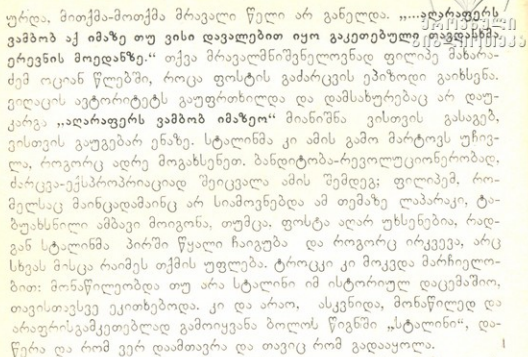 ურდა, მითქმა-მოთქმა მრავალი წელი არ განელდა. „...აღარაფერს
ვამბობ აქ იმაზე თუ ვისი დავალებით იყო გაკეთებული თავდასხმა
ერევნის მოედანზე.“ თქვა მრავალმნიშვნელოვნად ფილიპე მახარა-
ძემ ოციან წლებში, როცა ფოსტის გაძარცვის ეპიზოდი გაიხსენა.
ვიღაცის ავტორიტეტს გაუფრთხილდა და დამსახურებაც არ დაუ-
კარგა „აღარაფერს ვამბობ იმაზეო“ მიანიშნა ვისთვის გასაგებ,
ვისთვის გაუგებარ ენაზე. სტალინმა კი ამის გამო მარტოვს უჩივ-
ლა, როგორც ადრე მოგახსენეთ. ბანდიტობა-რევოლუციონერობად,
ძარცვა-ექსპროპრიაციად შეიცვალა ამის შემდეგ; ფილიპემ, რო-
მელსაც მაინცადამაინც არ სიამოვნებდა ამ თემაზე ლაპარაკი, ტა-
ბუახსნილი ამბავი მოიგონა, თუმცა, ფოსტა აღარ უხსენებია, რად-
გან სტალინმა პირში წყალი ჩაიგუბა და როგორც ირკვევა, არც
სხვას მისცა რაიმეს თქმის უფლება. ტროცკი კი მოკვდა მარჩიელო-
ბით: მონაწილეობდა თუ არა სტალინი იმ ისტორიულ დაცემაშიო,
თავისთავსვე ეკითხებოდა. კი და არაო, ასკვნიდა, მონაწილედ და
არაფრისგამკეთებლად გამოიყვანა ბოლოს წიგნში „სტალინი“, და-
წერა და რომ ვერ დაამთავრა და თავიც რომ გადააყოლა.